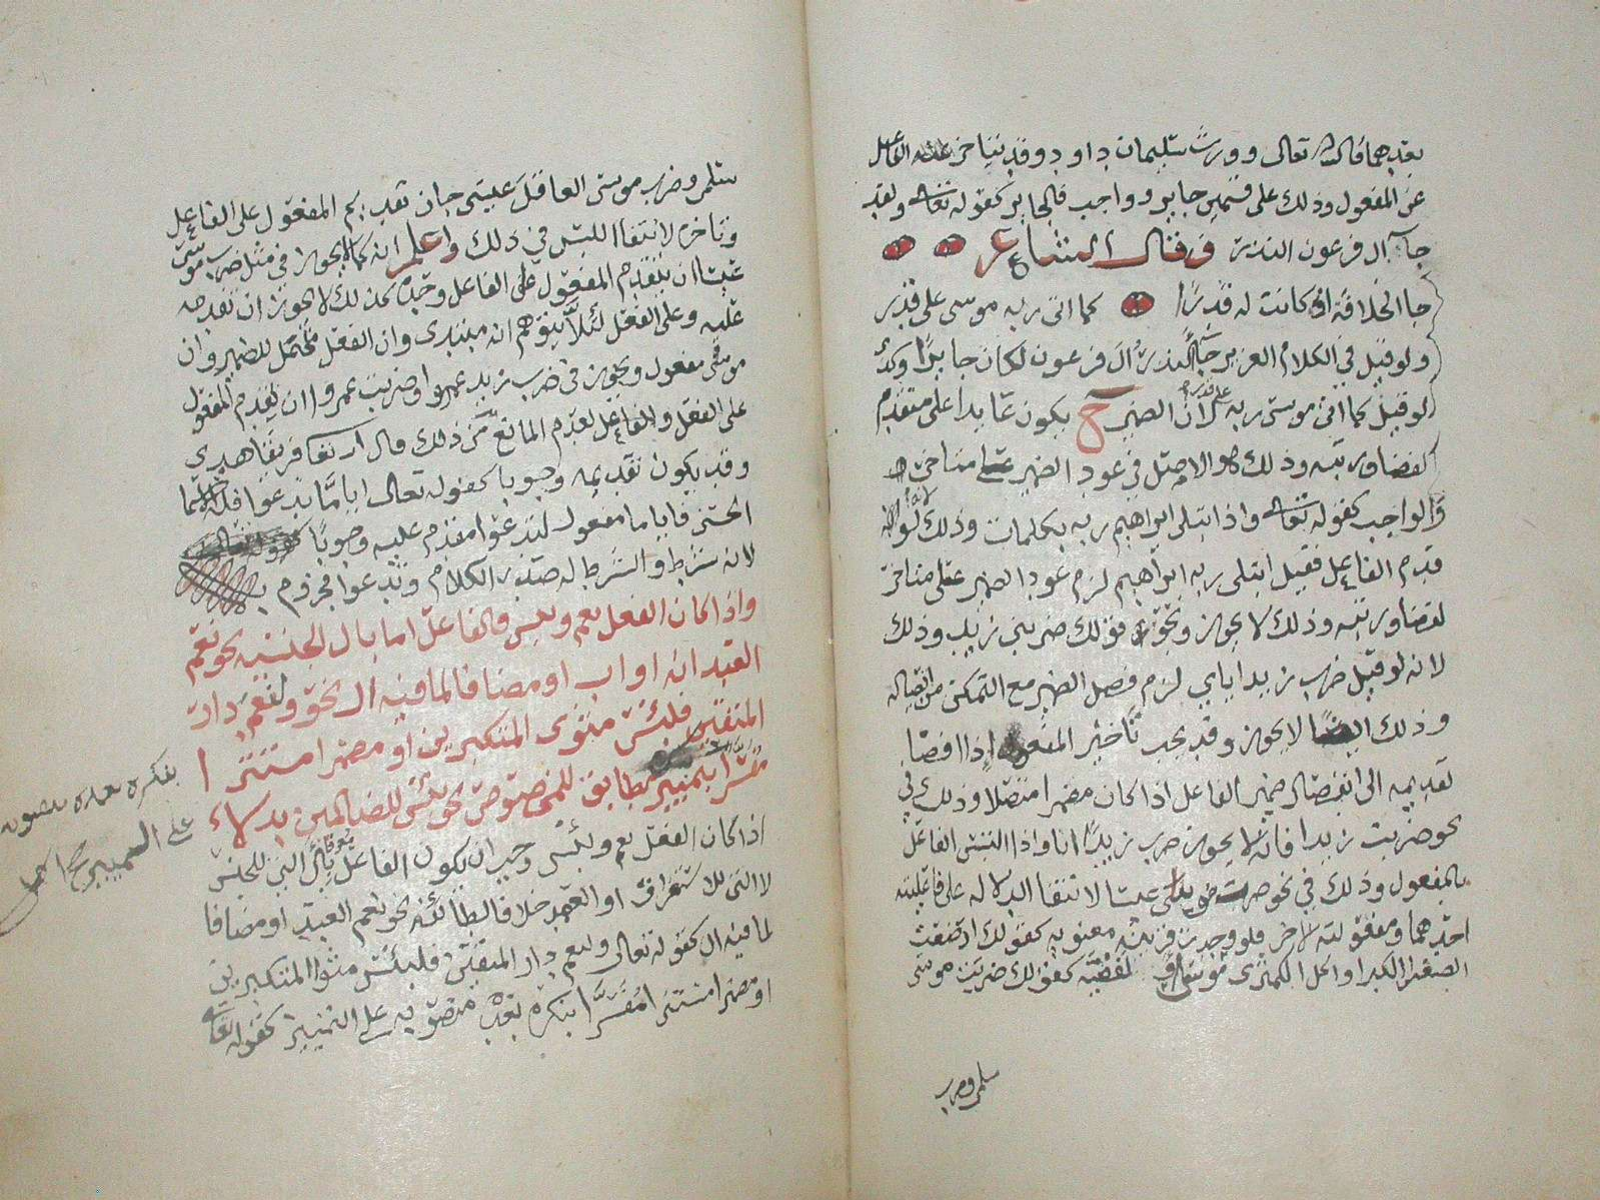 بعدهما قال الله تعالى وورث سليمان داود وقد يتاخر الفاعل
عن المفعول وذلك على قسمين جايز وواجب فالجايز كقوله تعالى ولقد
جاء آل فرعون النذر وقال الشاعر
جا الخلافة او كانت له قدرا كما اتى ربه موسى على قدر
ولو قيل في الكلام العزيز جاء النذر آل فرعون لكان جايزا وكذا
لو قيل كما اتى موسى ربه على قدر لان الضمير ح يكون عايدا على متقدم
لفضا ورتبه وذلك هو الاصل في عود الضمير
والواجب كقوله تعالى واذ ابتلى ابراهيم ربه بكلمات وذلك لانه لو
قدم الفاعل فقيل ابتلى ربه ابراهيم لزم عود الضمير على متاخر
لفضا ورتبه وذلك لا يجوز ونحو قولك ضربني زيد وذلك
لانه لو قيل ضرب زيد اياي لزم فصل الضمير مع التمكن من اتصاله
وذلك ايضا لا يجوز وقد يجب تاخير المفعول اذا افضا
تقديمه الى انفصال ضمير الفاعل اذا كان مضمرا متصلا وذلك في
نحو ضربت زيدا فانه لا يجوز ضرب زيدا انا واذا التبس الفاعل
بالمفعول وذلك في نحو ضرب موسى عيسا لانتفا الدلاله على فاعليته
احدهما ومفعولته الاخر فلو وجدت قرينه معنويه كقولك ارضعت
الصغرا الكبرا واكل الكمثرى موسى او لفضيه كقولك ضربت موسى
سلمى وضرب
سلمى وضرب موسى العاقل عيسى جان تقديم المفعول على الفاعل
وتاخره لانتفا اللبس في ذلك واعلم انه كما لا يجوز في مثل ضرب موسى
عيسا ان يتقدم المفعول على الفاعل وحده كذلك لا يجوز ان تقدمه
عليه وعلى الفعل لئلا يتوهم انه مبتدى وان الفعل محتمل للضمير وان
موسى مفعول ويجوز في ضرب زيد عمروا وضربت عمروا ان يقدم المفعول
على الفعل والفاعل لعدم المانع من ذلك قال الله تعا فريقا هدى
وقد يكون تقديمه وجوبا كقوله تعالى اياما تدعوا فله الاسما
الحسنى فاياما مفعول لتدعوا مقدم عليه وجوبا
لانه شرط والشرط له صدر الكلام وتدعوا مجزوم به
واذا كان الفعل نعم وبئس فالفاعل اما بال الجنسيه نحو نعم
العبد انه اواب او مضافا لما فيه ال نحو ولنعم دار
المتقين فلبئس مثوى المتكبرين او مضمرا مستترا
مفسرا بتمييز مطابق للمخصوص نحو بئس للضالمين بدلا
اذا كان الفعل نعم وبئس وجب ان يكون الفاعل معرفا بال التي للجنس
لا التي للاستغراق او العهد خلافا لطائفه نحو نعم العبد او مضافا
لما فيه ال كقوله تعالى ولنعم دار المتقين فلبئس مثوا المتكبرين
او مضمرا مستترا مفسرا بنكره بعده منصوبه على التمييز كقوله تعالى
بنكره بعده منصوبه
على التمييز